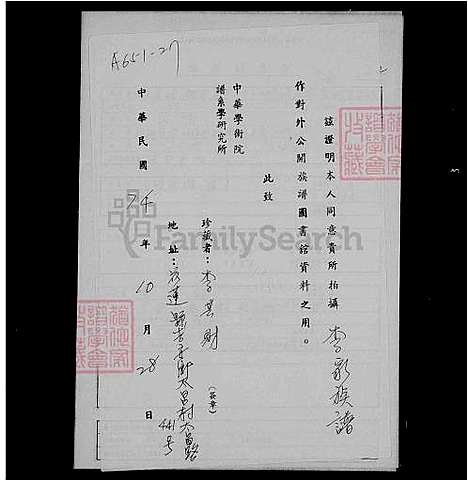 A651-27
茲證明本人同意貴所拍攝 李氏族譜
作對外公開族譜圖書館資料之用。
此致
中華學術院
譜系學研究所
珍藏者：李其財 (簽章)
地址：花蓮縣吉安鄉太昌村太昌路441號
中華民國 74 年 10 月 28 日
譜學會
收藏
譜學會
收藏
FamilySearch